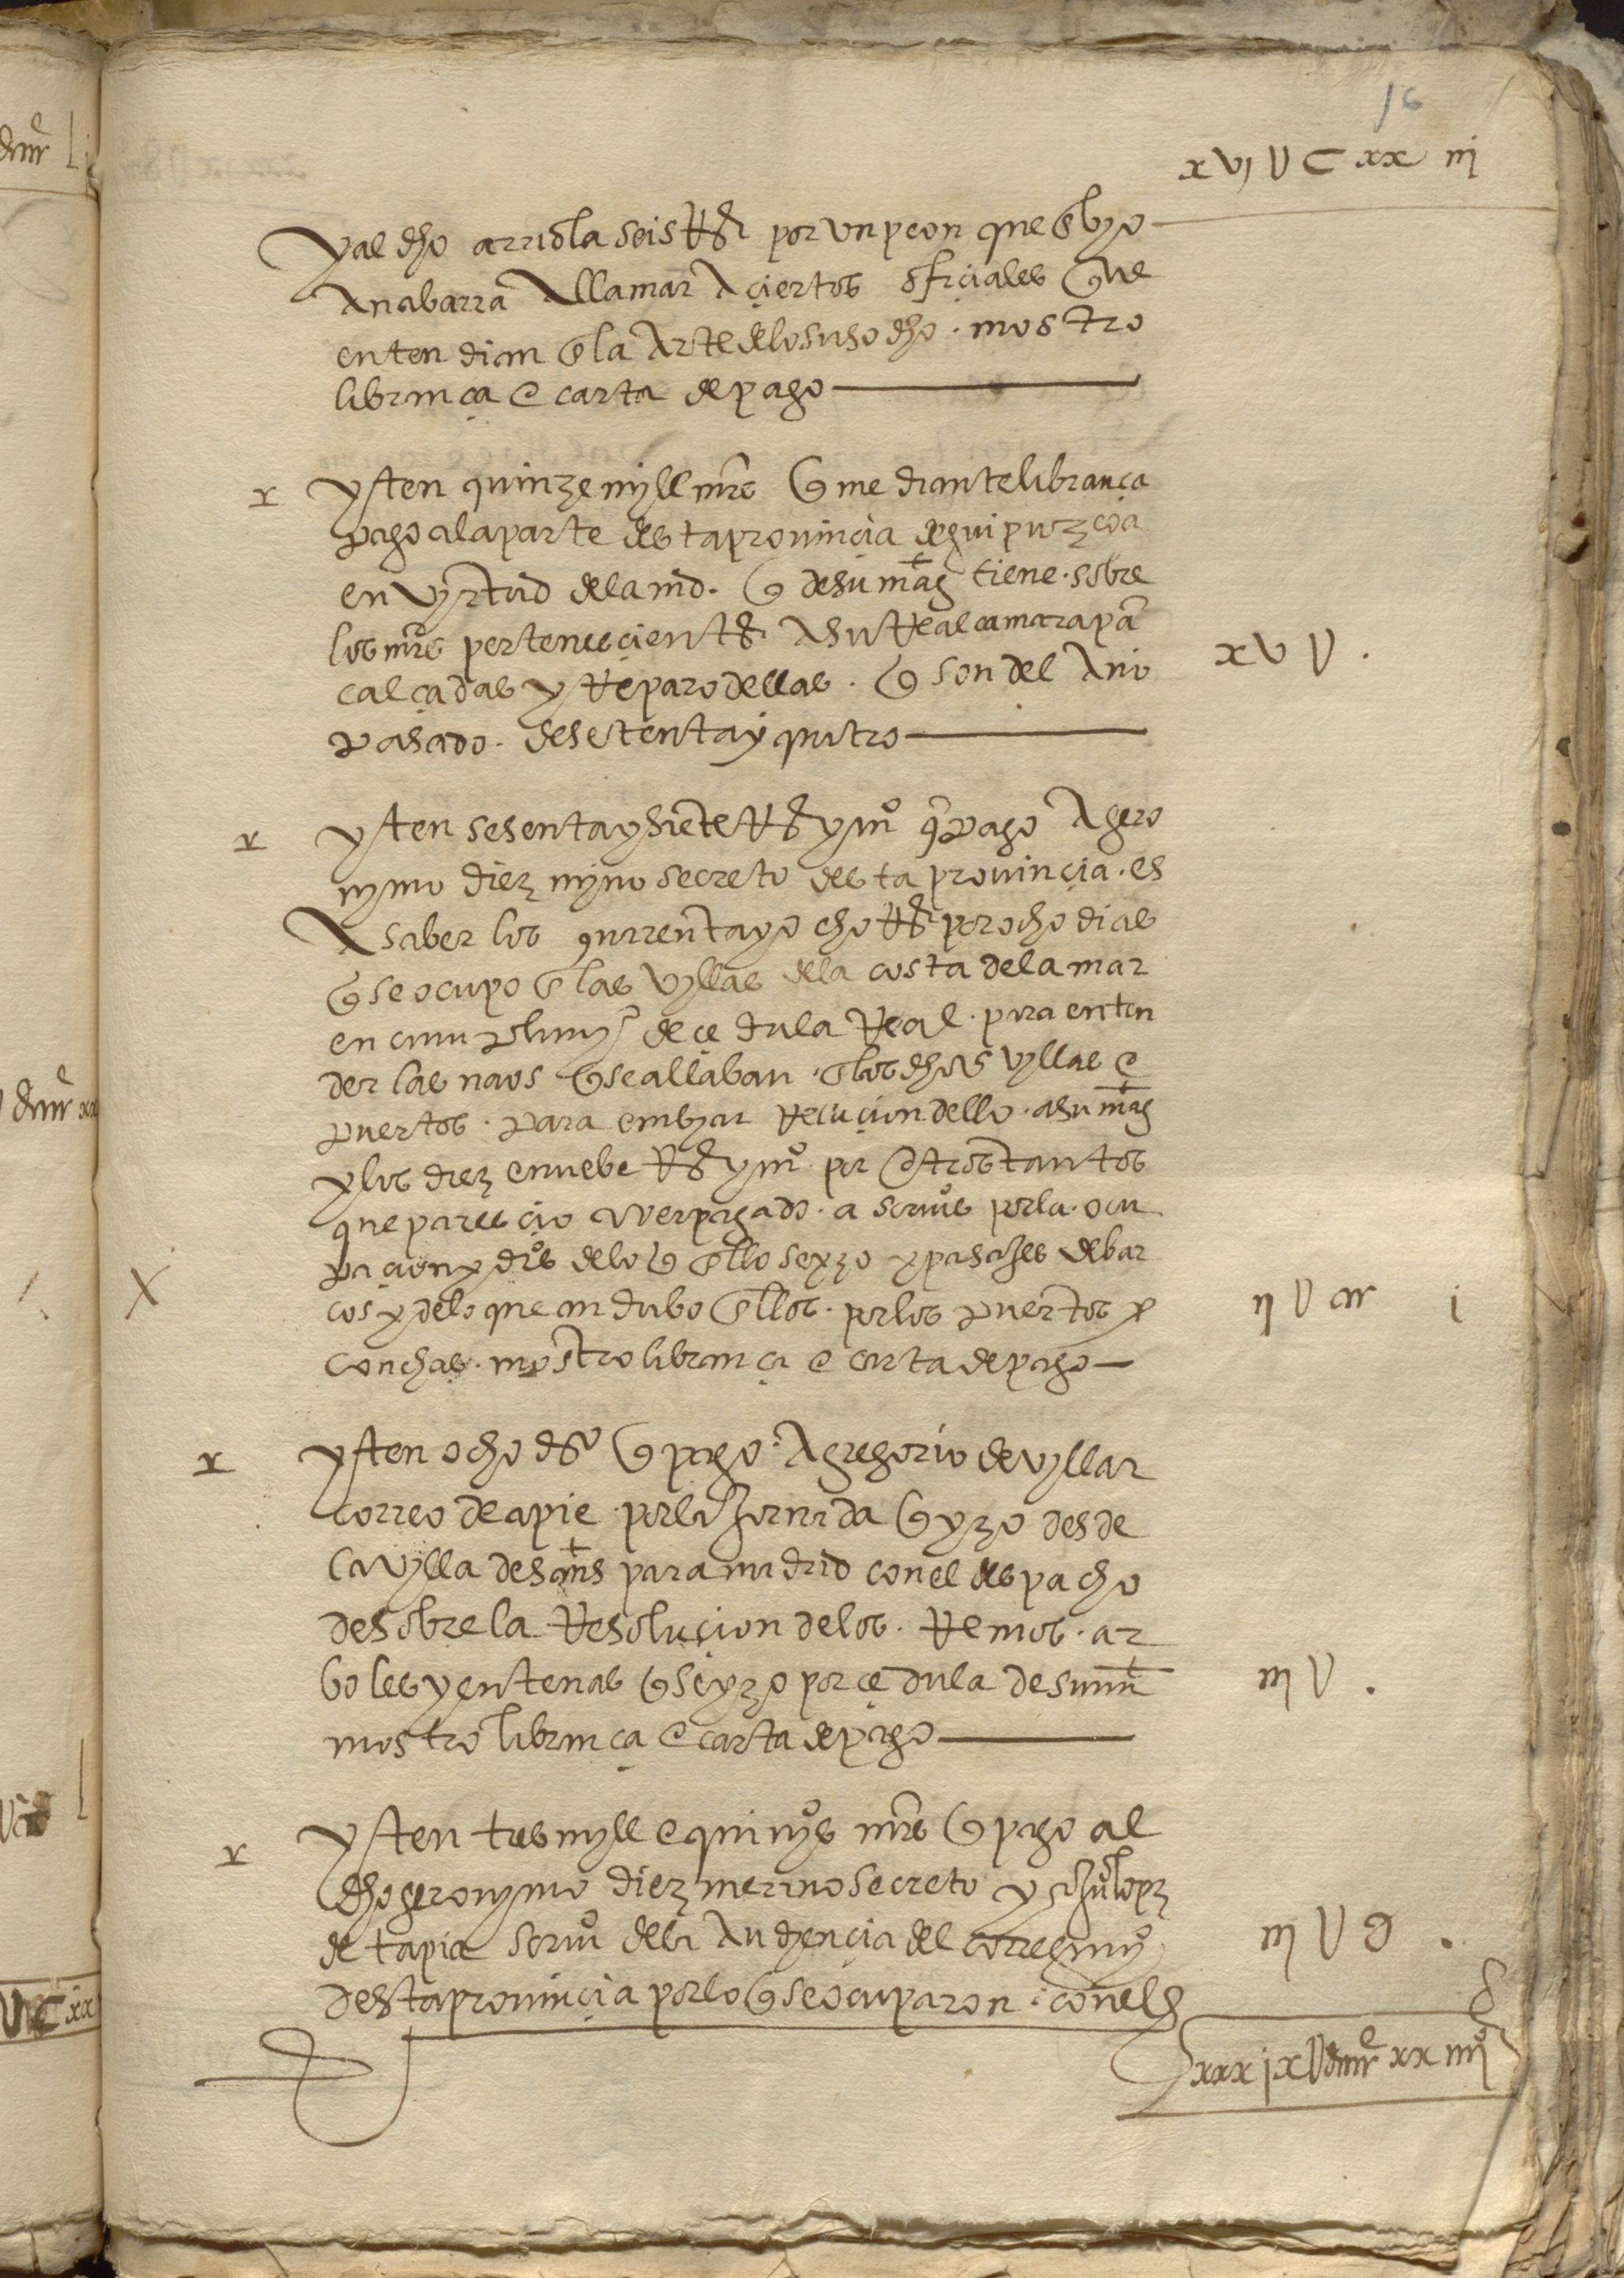 16
xvj U C xx iij
Y al dho arriola seis Rs por vn peon que enbyo
A nabarra A llamar A çiertos ofiçiales que
entendian en la Arte de lo suso dho . mostro
librança e carta de pago
r
Yten quinze myll mrs que mediante librança
pago a la parte desta prouinçia de guipuzcoa
en vyrtud de la md . que de su magt tiene . sobre
los mrs pertenesçientes A su Real camara pa
calçadas y Reparo dellas . que son del Año
pasado . de setenta y quatro
xv U .
r
Yten sesenta y siete Rs y mo q pago A gero
nymo diez myno secreto desta prouinçia . es
A saber los quarenta y ocho Rs por ocho dias
que se ocupo en las vyllas de la costa de la mar
en cunplimyo de çedula Real . para enten
der las naos que se allaban . en las dhas vyllas e
puertos . para enbyar Relaçion dello . a su magt
y los diez e nuebe Rs y mo . por otros tantos
que paresçio aver pagado . a scriuos por la . ocu
paçion y dros de lo que en ello se yzo y pasajes de bar
cos y de lo que andubo en ellos . por los puertos y
conchas . mostro librança e carta de pago
X
ij U cc i
r
Yten ocho ds que pago . A gregorio de vyllar
correo de a pie . por la jornada que yzo desde
la vylla de sant ms para madrid con el despacho
de sobre la Resoluçion de los . Remos . ar
boles y entenas que se yzo por çedula de su mt
mostro librança e carta de pago
iij U .
r
Yten tres myll e quinyos mrs que pago al
dho geronymo diez merino secreto y a ju lopz
de tapia scriuo de la Audyençia del corregimyo
desta prouinçia por lo que se ocuparon . con el
iij U d .
xxxix U dccc xx iiijo